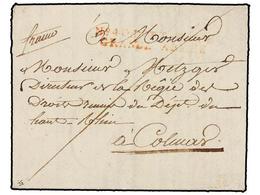 franco
A Monsieur
GRANDE ARMÉE
Monsieur Metzger
Directeur de la Régie des
Droits réunis du Dépt. du
haut-Rhin
à Colmar